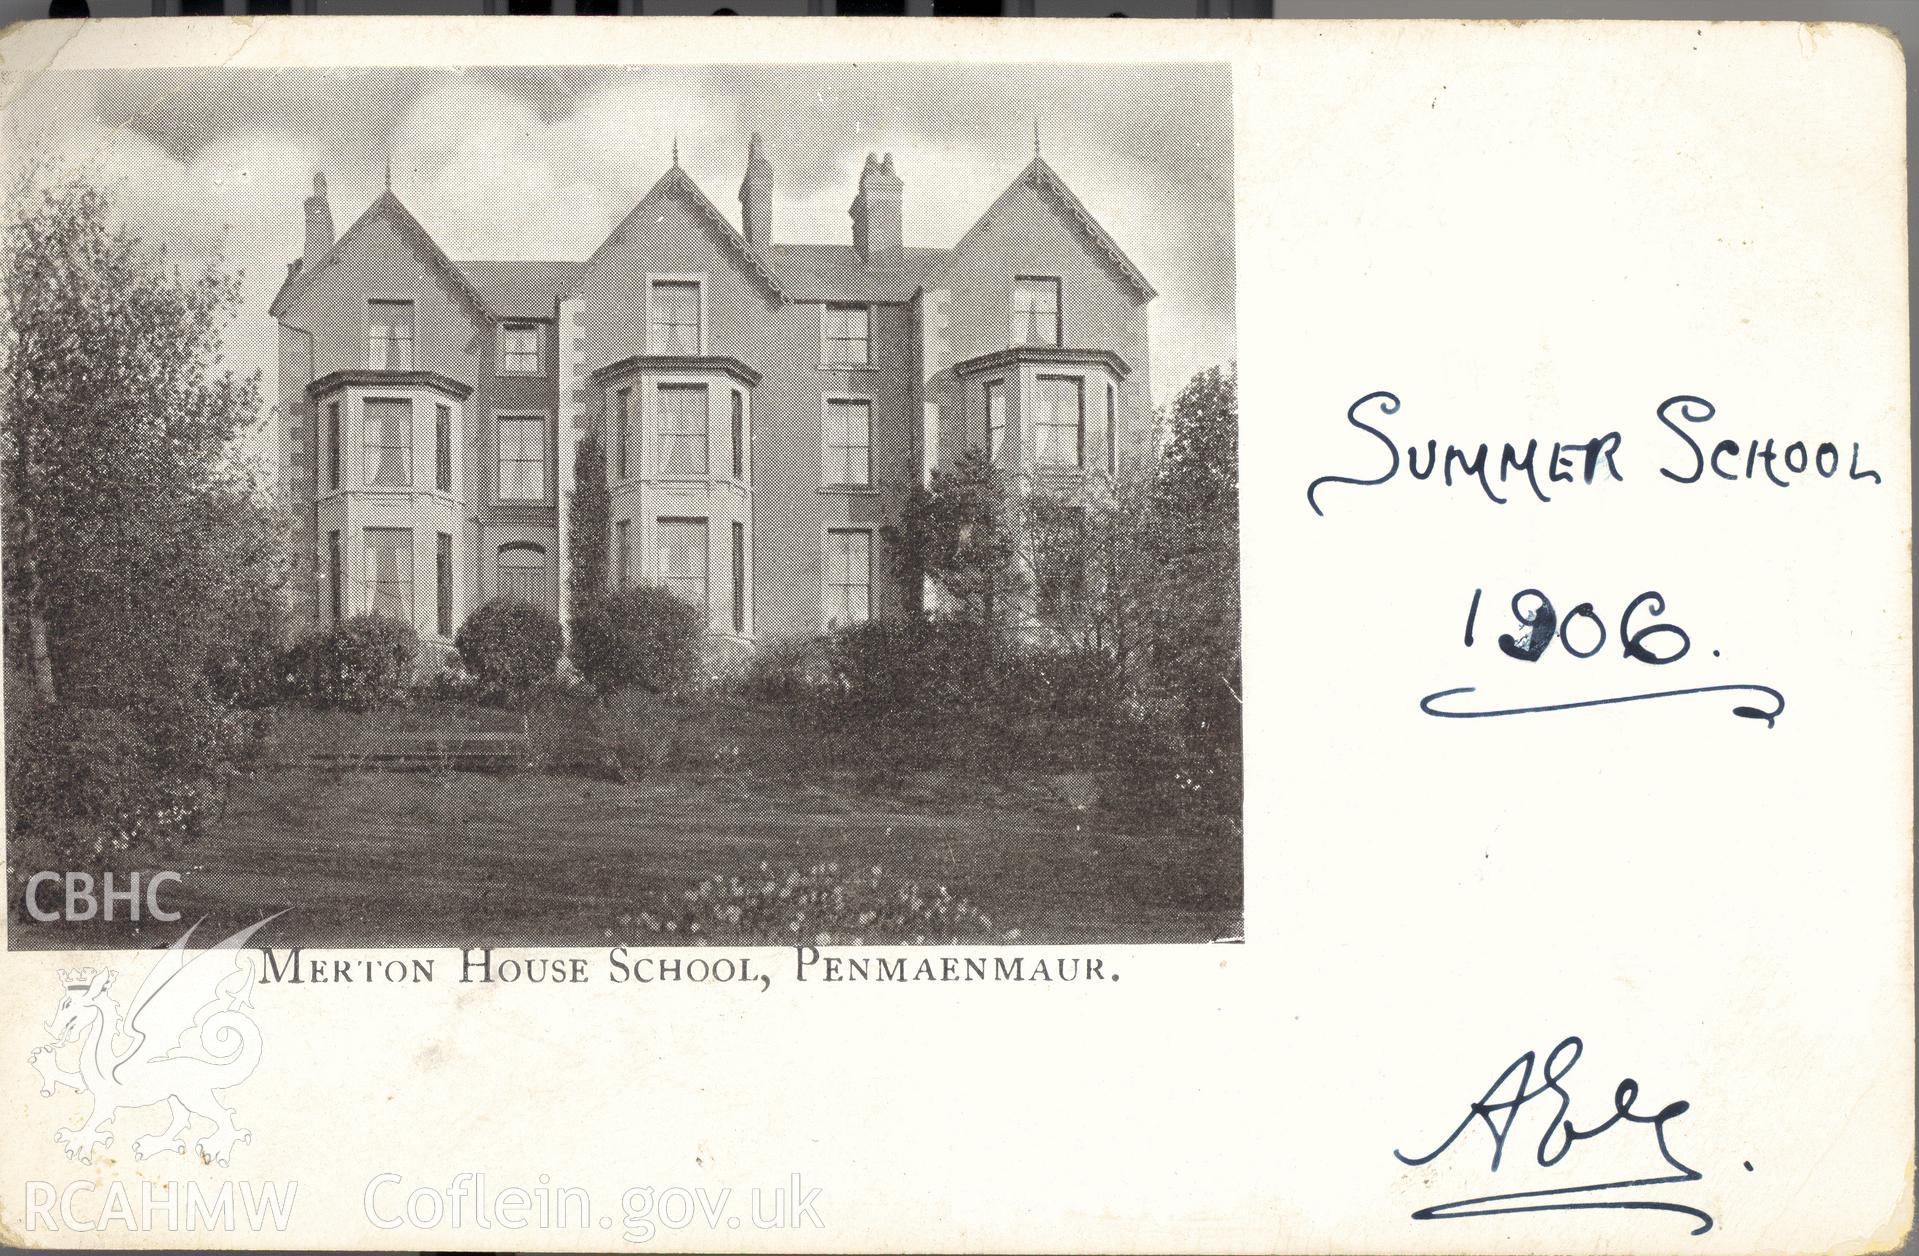 SUMMER SCHOOL
1906.
MERTON HOUSE SCHOOL, PENMAENMAUR.
CBHC
RCAHMW
Coflein.gov.uk